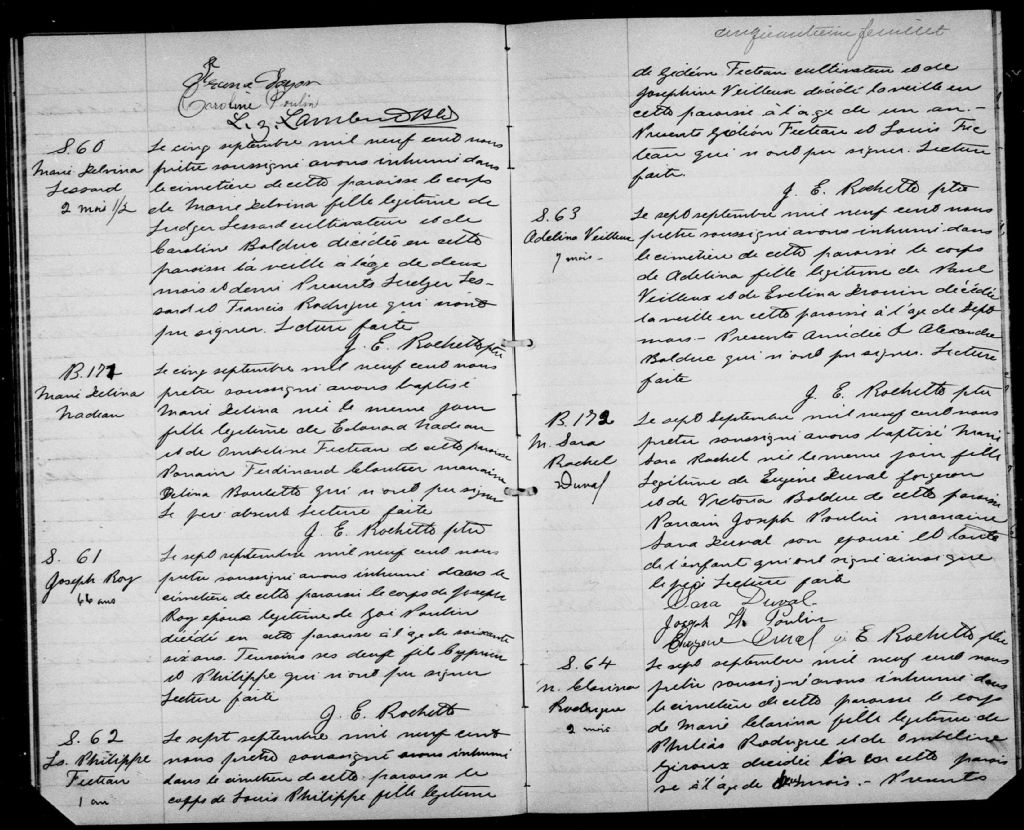 Caroline Poulin
S. 60
Marie Delvina
Lessard
2 mois 1/2
Le cinq septembre mil neuf cent nous
prêtre soussigné avons inhumé dans
le cimetière de cette paroisse le corps
de Marie Delvina fille legitime de
Ludger Lessard cultivateur et de
Caroline Bolduc décédée en cette
paroisse la veille à l'âge de deux
mois et demi Presents Ludger Les-
sard et Francis Rodrigue qui n'ont
pu signer. Lecture faite
J. E. Rochette ptre
B. 171
Marie Delina
Nadeau
Le cinq septembre mil neuf cent nous
prêtre soussigné avons baptisé
Marie Delina née le meme jour
fille legitime de Edouard Nadeau
et de Ombeline Fecteau de cette paroisse
Parrain Ferdinand Cloutier marraine
Delina Boulette qui n'ont pu signer
Le père absent Lecture faite
J. E. Rochette ptre
S. 61
Joseph Roy
66 ans
Le sept septembre mil neuf cent nous
prêtre soussigné avons inhumé dans le
cimetière de cette paroisse le corps de Joseph
Roy époux legitime de Zoé Poulin
décédé en cette paroisse à l'age de soixante
six ans. Temoins ses deux fils Cyprien
et Philippe qui n'ont pu signer
Lecture faite
J. E. Rochette
S. 62
Ls. Philippe
Fecteau
1 an
Le sept septembre mil neuf cent
nous prêtre soussigné avons inhumé
dans le cimetière de cette paroisse le
corps de Louis Philippe fils legitime
cinquantieme feuillet
de Gédéon Fecteau cultivateur et de
Josephine Veilleux décédé la veille en
cette paroisse à l'age de un an.-
Presents Gédéon Fecteau et Louis Fec-
teau qui n'ont pu signer. Lecture
faite.
J. E. Rochette ptre
S. 63
Adelina Veilleux
7 mois-
Le sept septembre mil neuf cent nous
prêtre soussigné avons inhumé dans
le cimetière de cette paroisse le corps
de Adelina fille legitime de Paul
Veilleux et de Evelina Drouin décédée
la veille en cette paroisse à l'age de sept
mois- Presents Amédée & Alexandre
Bolduc qui n'ont pu signer. Lecture
faite
J. E. Rochette ptre
B. 172
M. Sara
Rachel
Duval
Le sept septembre mil neuf cent nous
prêtre soussigné avons baptisé Marie
Sara Rachel née le meme jour fille
legitime de Eugène Duval forgeron
et de Victoria Bolduc de cette paroisse
Parrain Joseph Poulin marraine
Sara Duval son épouse et tante
de l'enfant qui ont signé ainsi que
le père Lecture faite
Sara Duval
Joseph Th. Poulin
Eugene Duval J E Rochette ptre
S. 64
M. Clarina
Rodrigue
2 mois
Le sept septembre mil neuf cent nous
prêtre soussigné avons inhumé dans
le cimetière de cette paroisse le corps
de Marie Clarina fille legitime de
Philias Rodrigue et de Ombeline
Giroux décédée en cette parois
se à l'age de mois.- Presents